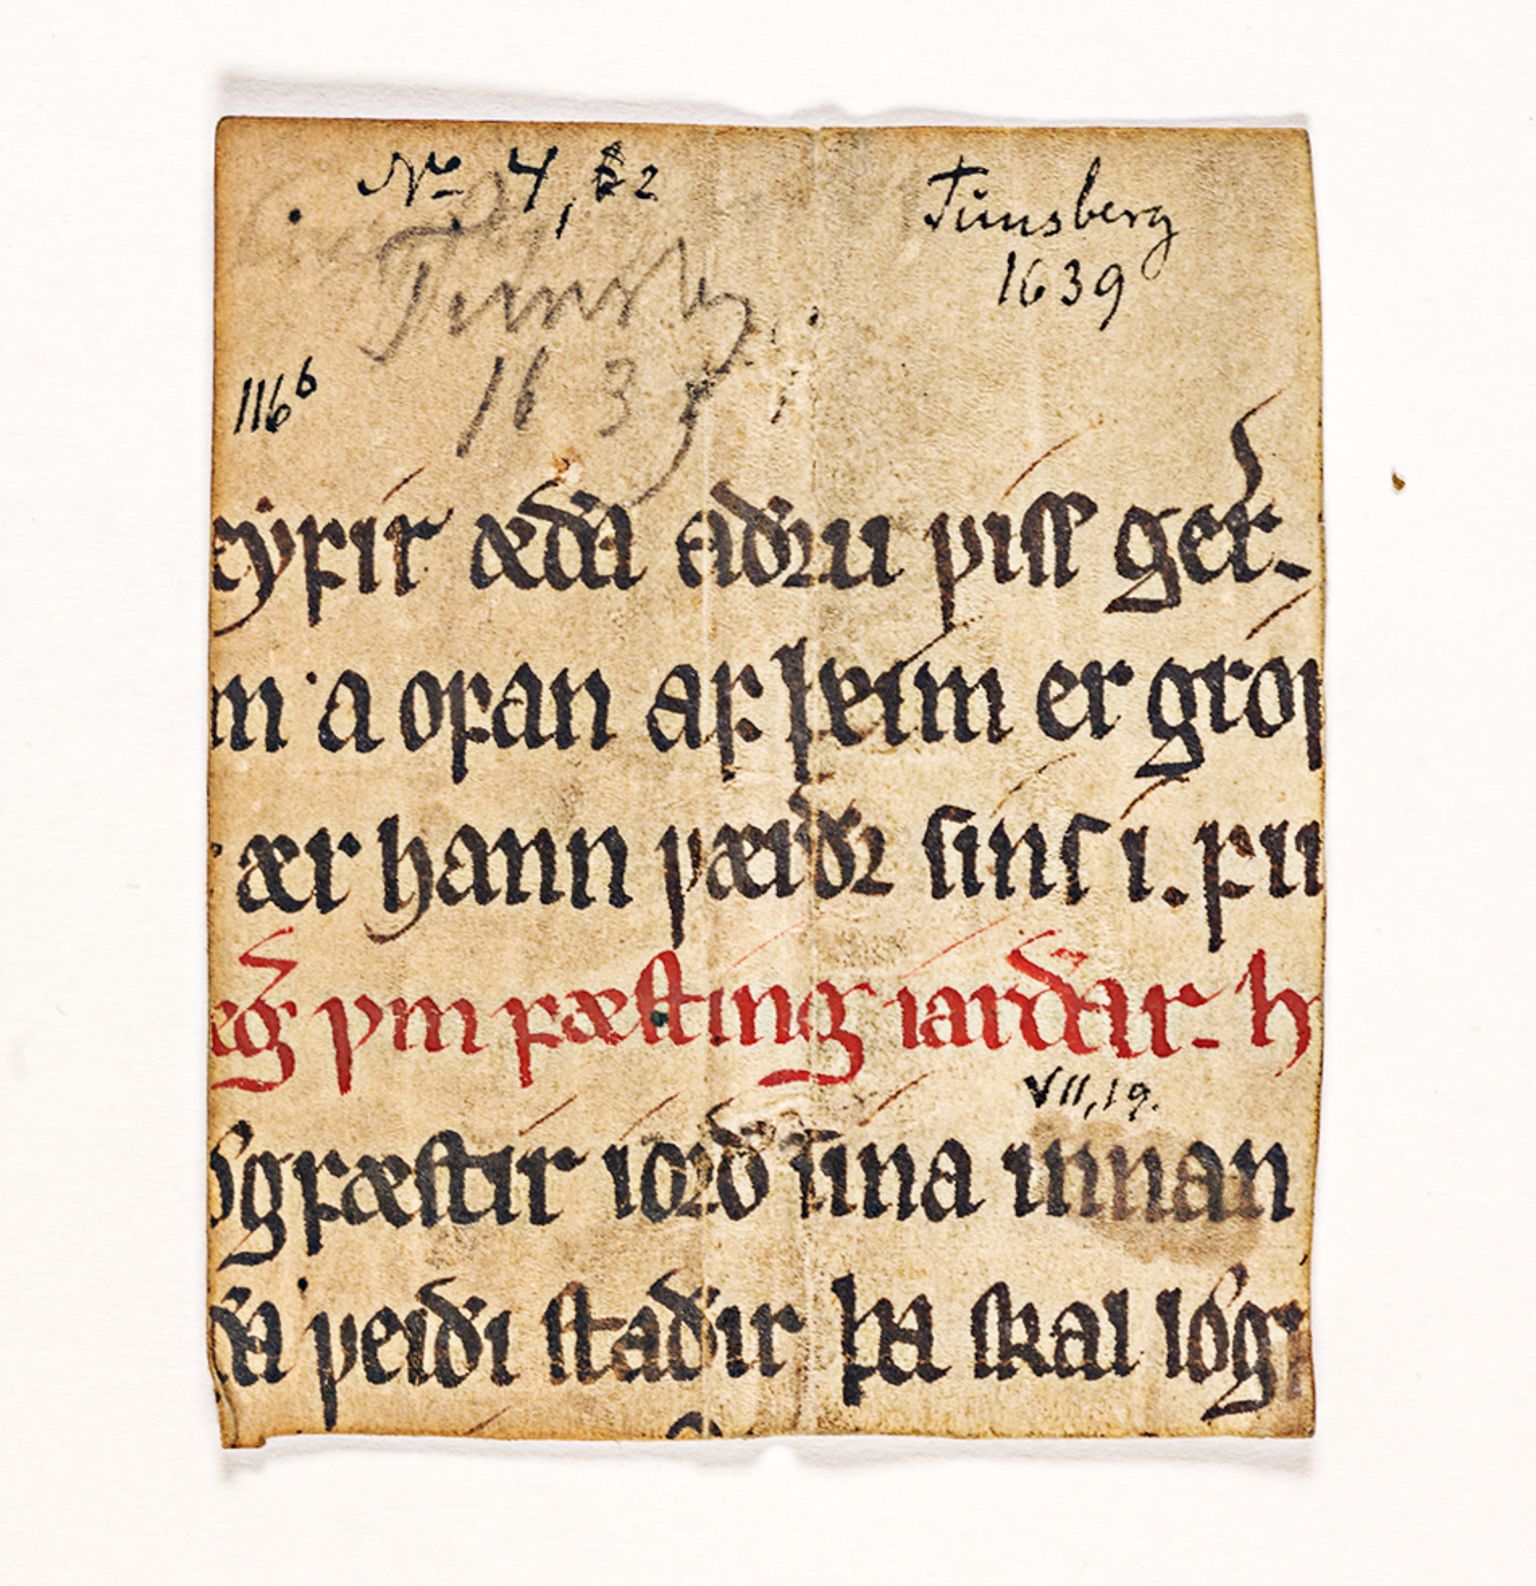 No 4, 2
Tunsberg
1639
Tunsberg
1639
116b
eyfir æða aðru viss ger-
m a ofan af þeim er grof
ær hann væiðr sins i. fu
eg vm fæsting iarðar- h
VII, 19.
ogfæstir iorð sina innan
ða veiði staðir þa skal logf